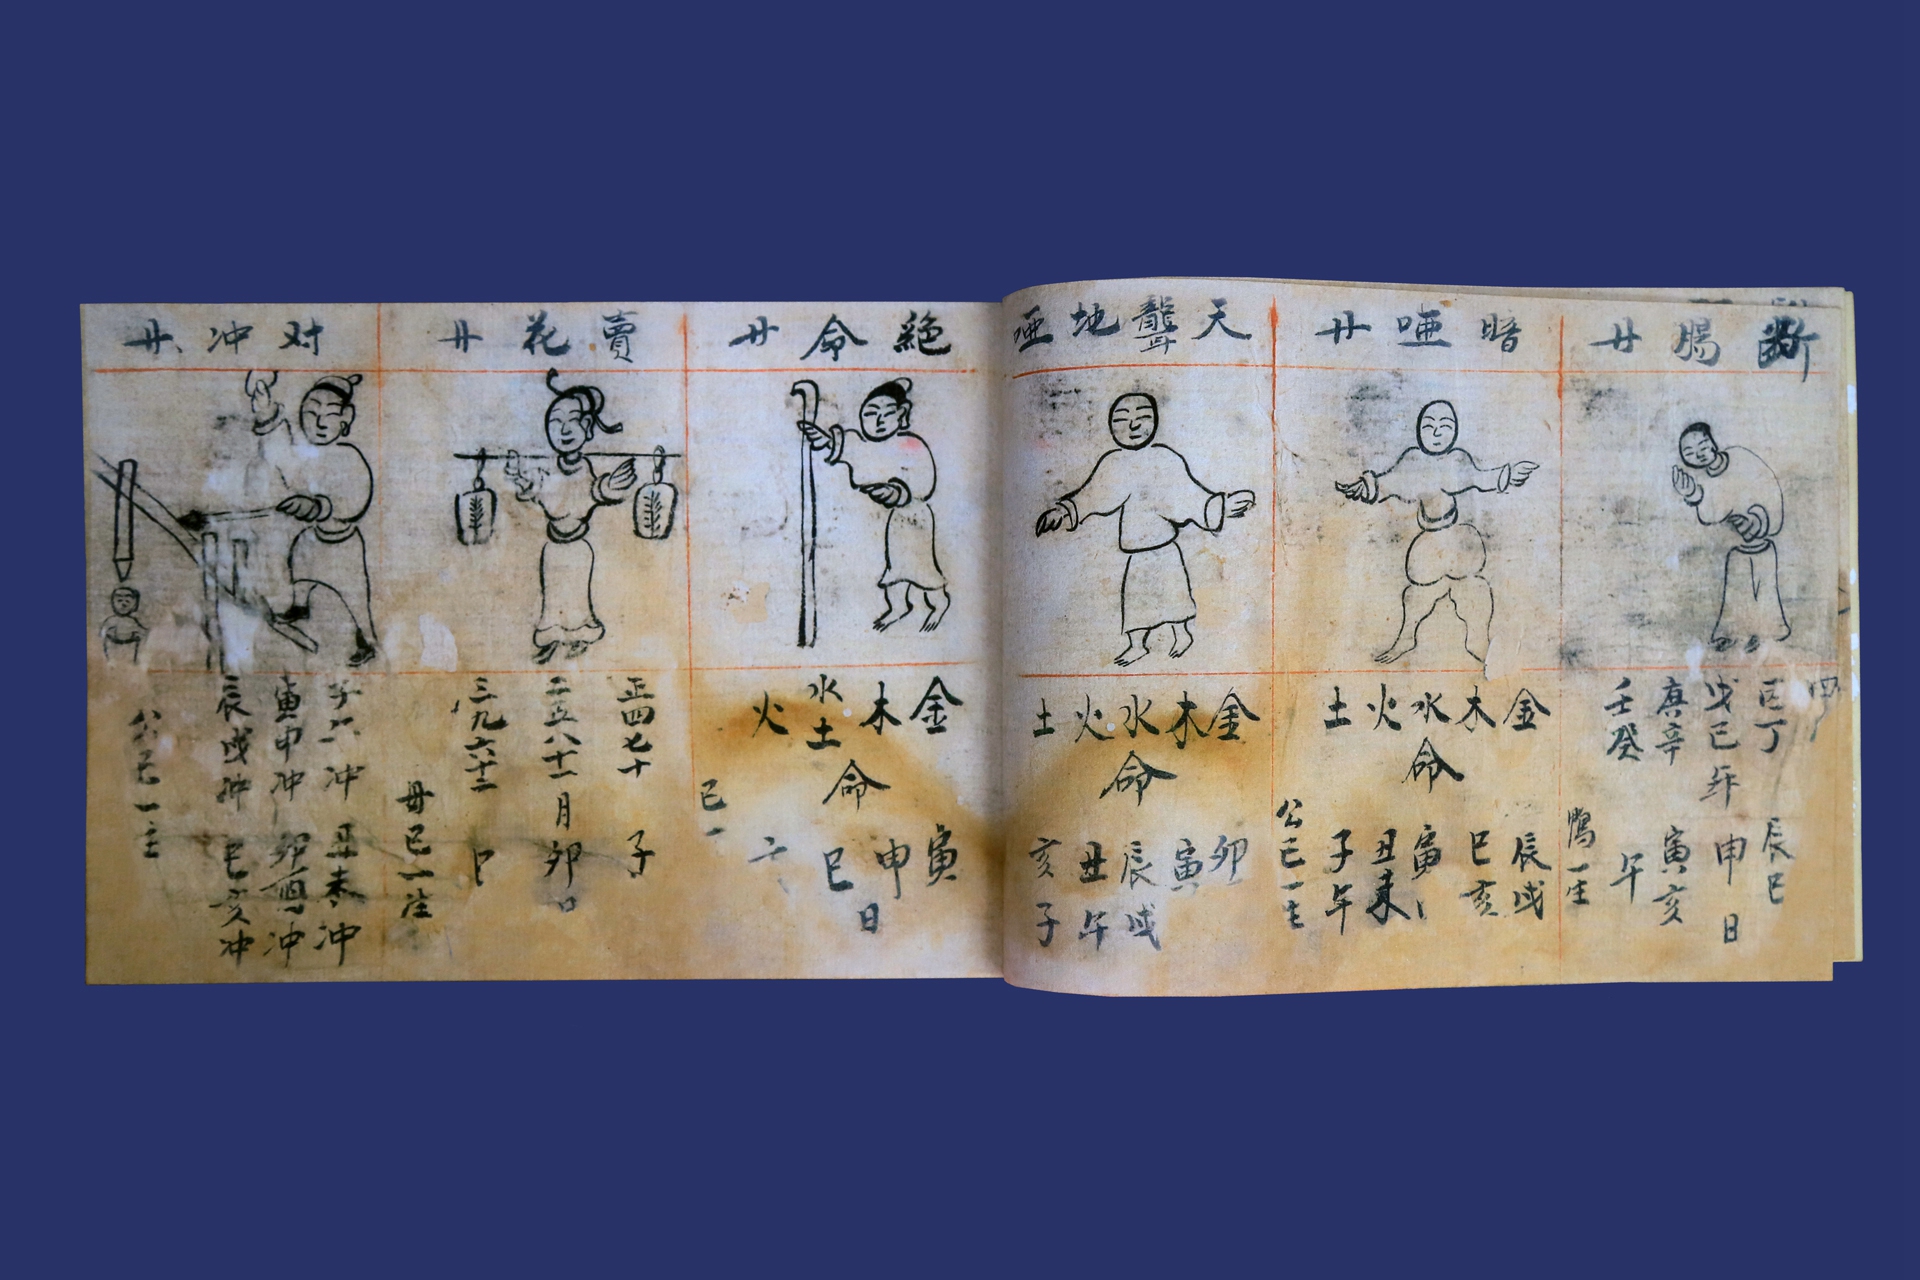 断腸廾
丁
戊己年
庚辛
壬癸
辰巳
申日
寅亥
午
一生
暗啞廾
金木水火土
命
辰戌
巳亥
寅
丑未
子午
公己一生
天聾地啞
金木水火土
命
卯
寅
辰戌
丑午
亥子
絕命廾
金木水土火
命
寅申巳
日
己一
賣花廾
正四七十
子
二五八十一月
卯
三九六十二
母己一生
对冲廾
冲
丑未冲
寅申冲
卯酉冲
辰戌冲
巳亥冲
一生